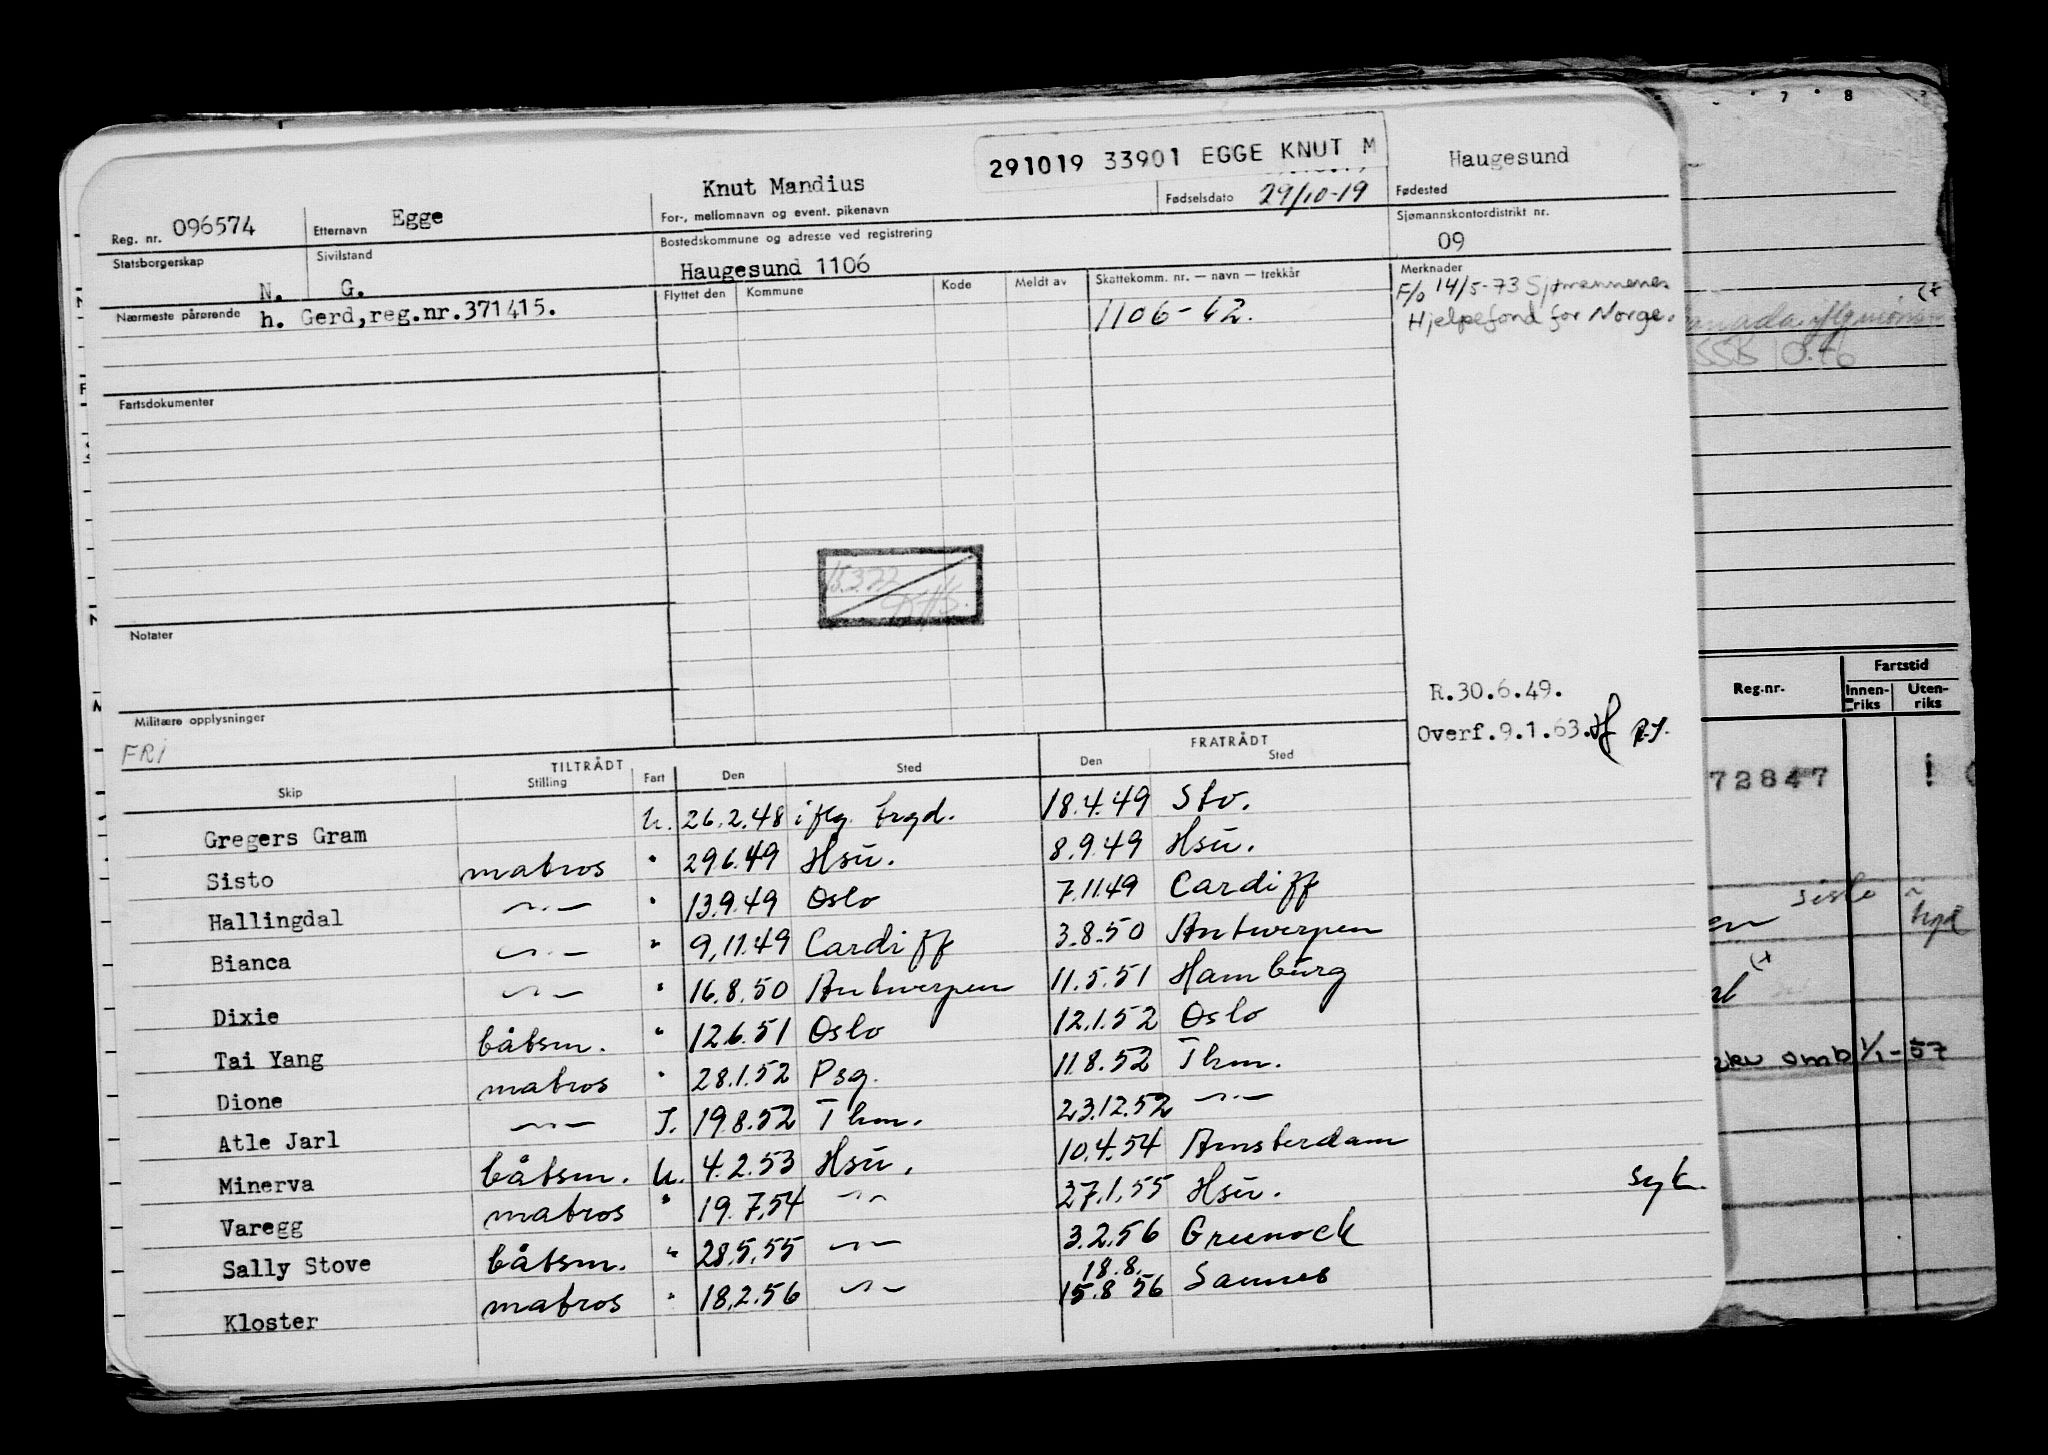 291019 33901 EGGE KNUT M
Reg. nr. 096574 Etternavn Egge Knut Mandius For-, mellomnavn og event. pikenavn Fødselsdato 29/10-19 Haugesund Fødested
Statsborgerskap N. Sivilstand G. Bostedskommune og adresse ved registrering Haugesund 1106 Sjømannskontordistrikt nr. 09
Nærmeste pårørende h. Gerd,reg.nr.371415. Flyttet den Kommune Kode Meldt av Skattekomm. nr. — navn — trekkår Merknader
1106-42.
F/o 14/5-73 Sjømannenes
Hjelpefond for Norge.
Fartsdokumenter
Notater
Militære opplysninger
FRI
R.30.6.49.
Overf.9.1.63.
TILTRÅDT FRATRÅDT
Skip Stilling Fart Den Sted Den Sted
Gregers Gram U. 26.2.48 iflg. trgd. 18.4.49 Stv.
Sisto matros " 29.6.49 Hsu. 8.9.49 Hsu.
Hallingdal —"— " 13.9.49 Oslo 7.11.49 Cardiff
Bianca —"— " 9.11.49 Cardiff 3.8.50 Antwerpen
Dixie —"— " 16.8.50 Antwerpen 11.5.51 Hamburg
Tai Yang båtsm. " 12.6.51 Oslo 12.1.52 Oslo
Dione matros " 28.1.52 Psg. 11.8.52 Thm.
Atle Jarl —"— I. 19.8.52 Thm. 23.12.52 —"—
Minerva båtsm. U. 4.2.53 Hsu. 10.4.54 Amsterdam
Varegg matros " 19.7.54 —"— 27.1.55 Hsu. syk.
Sally Stove båtsm. " 28.5.55 —"— 3.2.56 Greenock
Kloster matros " 18.2.56 —"— 18.8. 15.8 56 Sannes
7 8
Reg.nr. Fartstid
Innen-riks Uten-riks
72847
sisto
omb 1/1-57